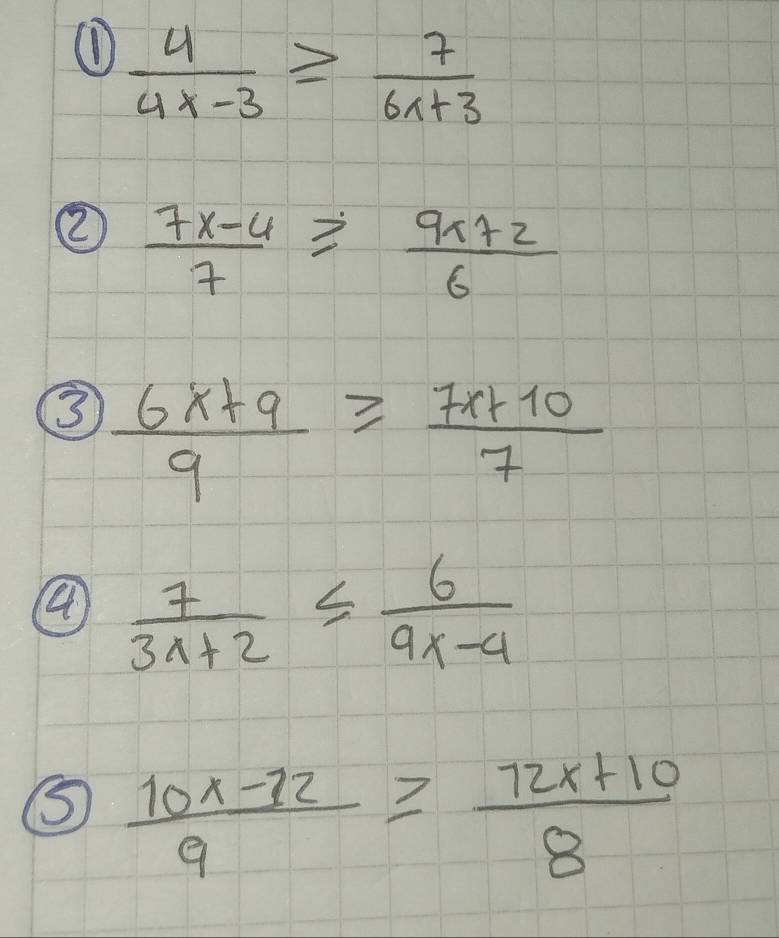 ① 4/(4x-3) ≥ 7/(6x+3)
② (7x-4)/7 ≥ (9x+2)/6
③ (6x+9)/9 ≥ (7x+10)/7
④ 7/(3x+2) ≤ 6/(9x-4)
⑤ (10x-12)/9 ≥ (12x+10)/8